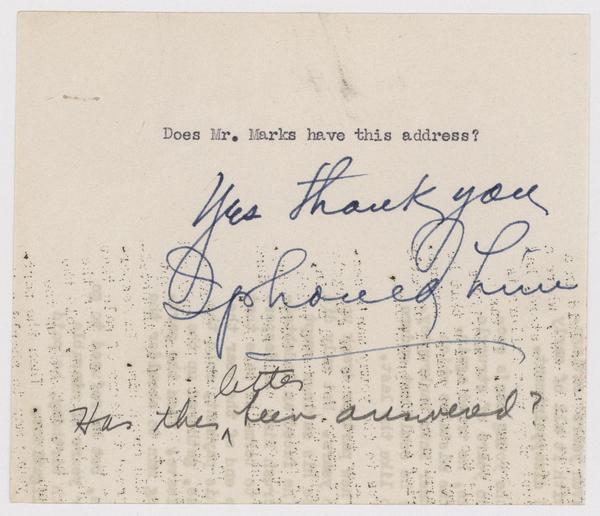 Does Mr. Marks have this address?
Yes thank you
I phoned him
letter
Has the ^ been answered?